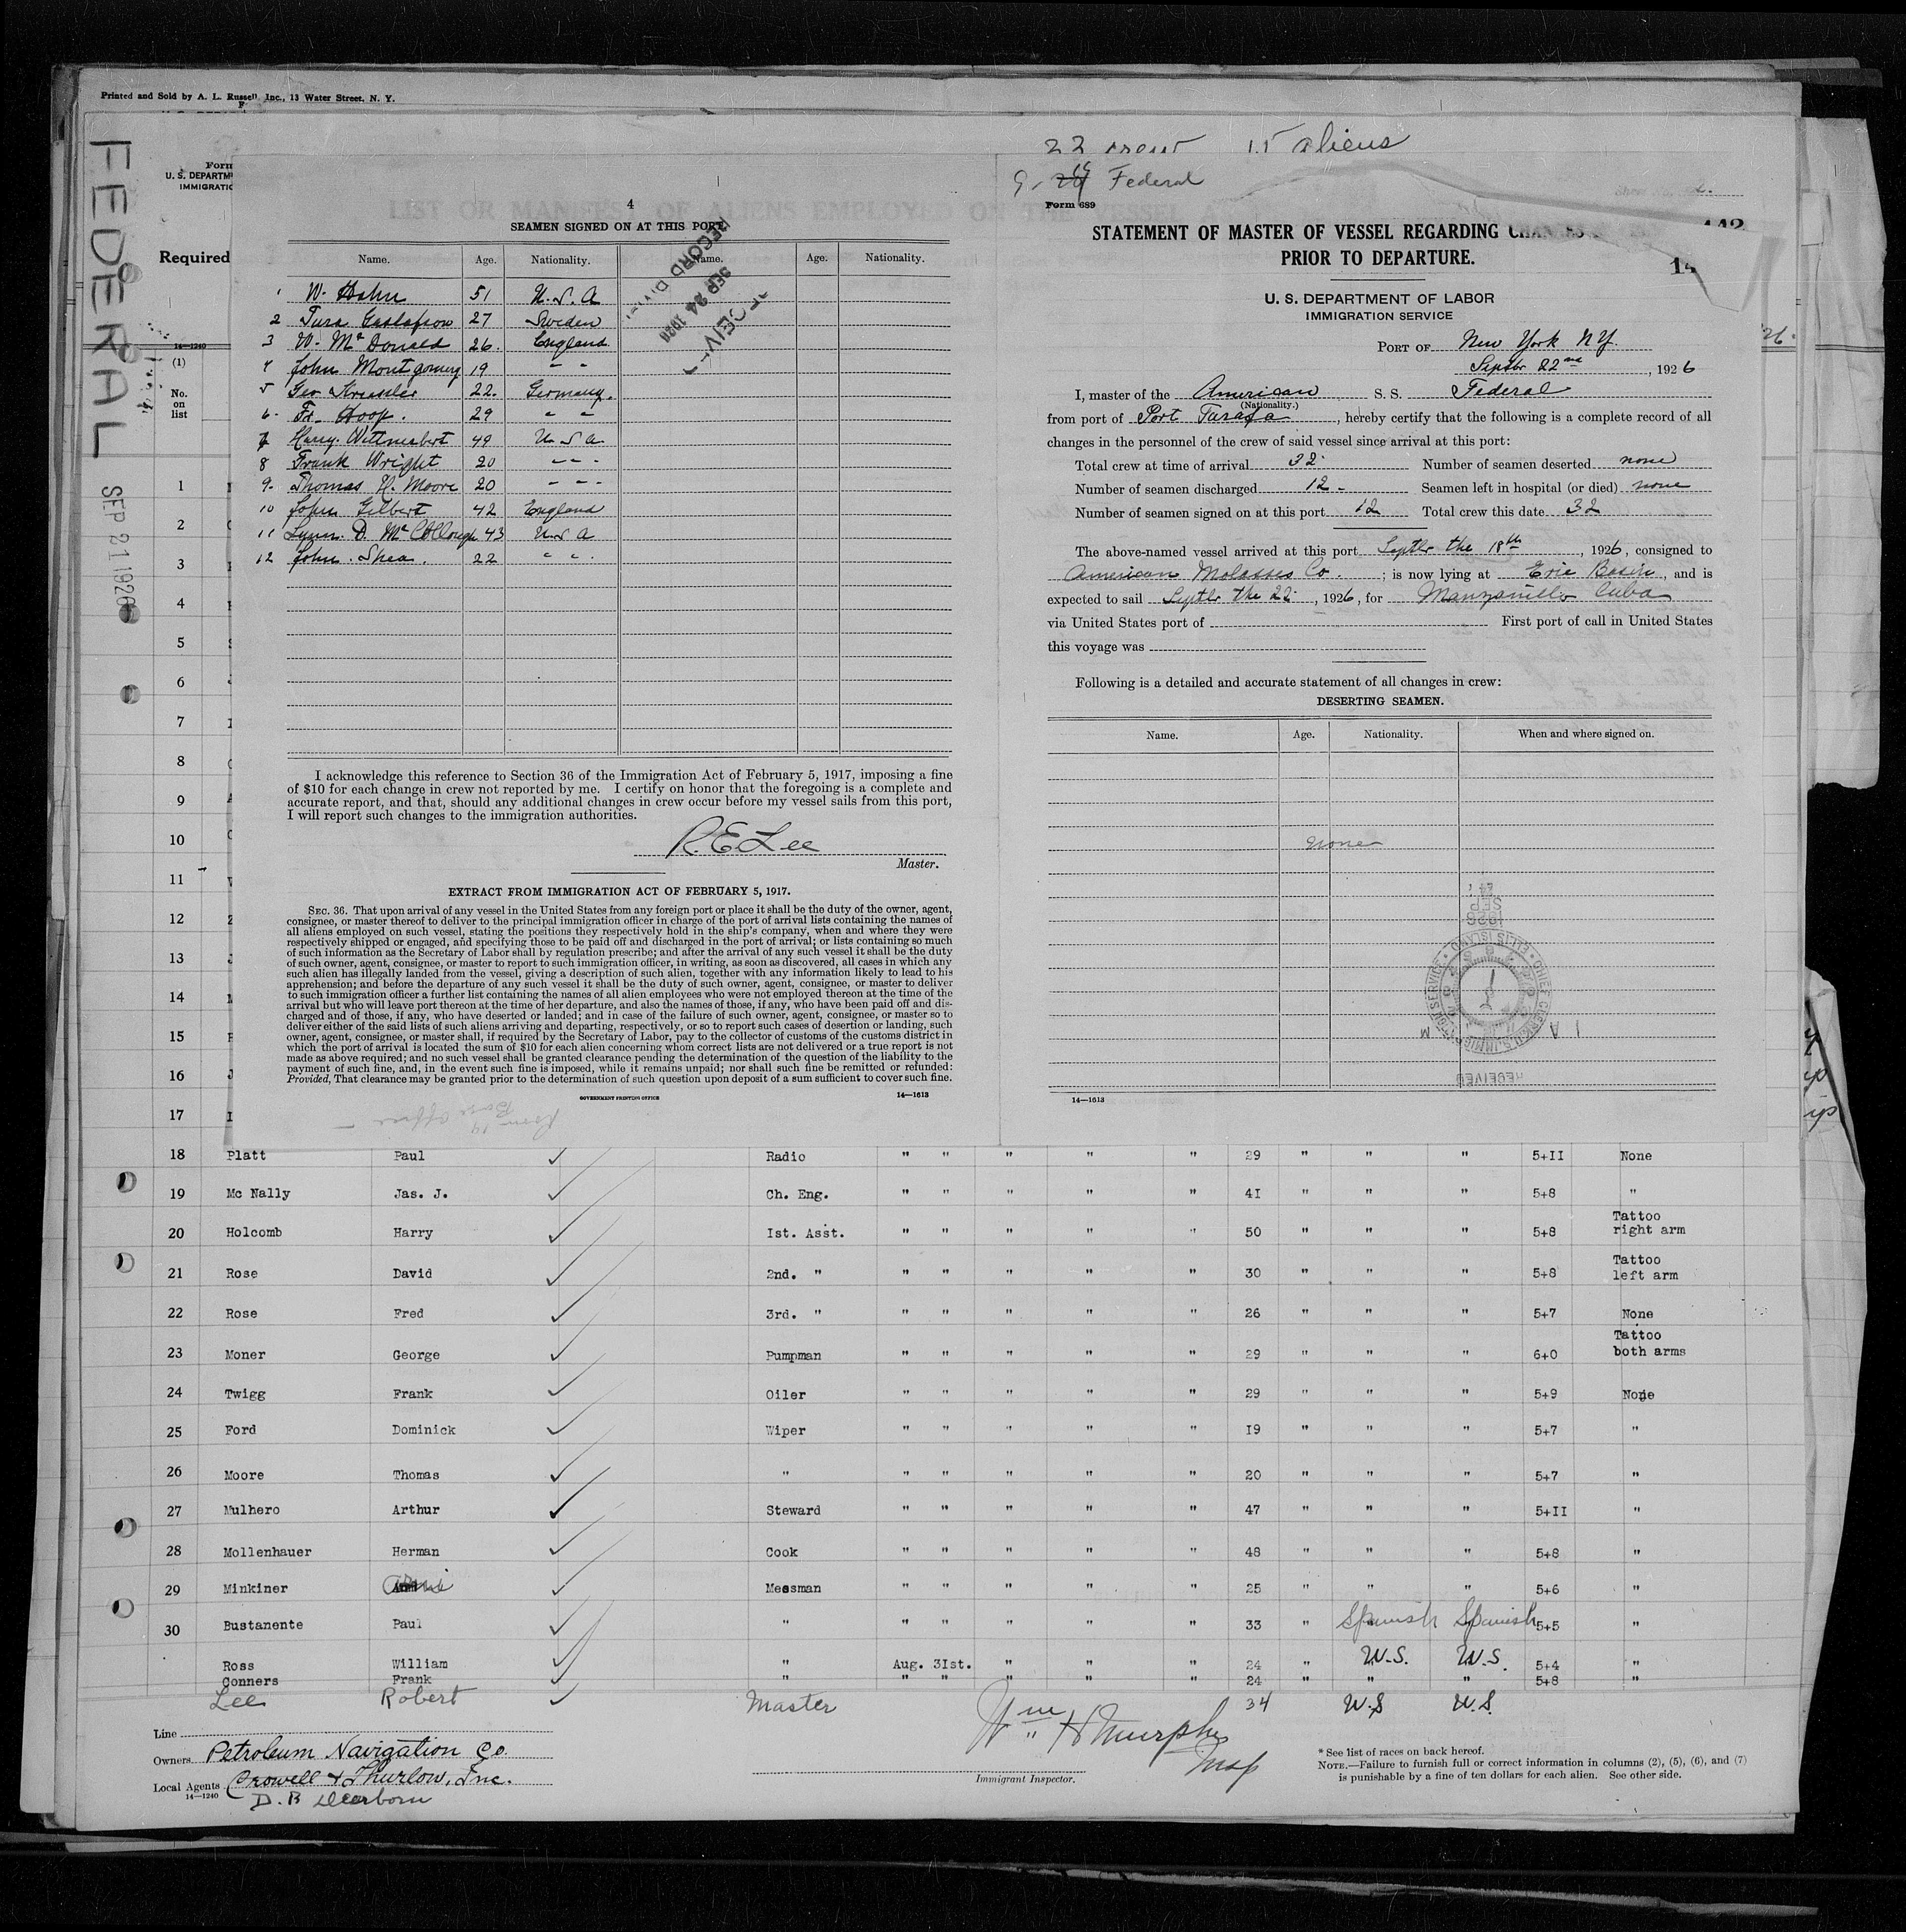 Printed and Sold by A. L. Russell, Inc., 13 Water Street, N. Y.
FEDERAL
SEP 21 1926
Form
U. S. DEPARTM
IMMIGRATIO
Required
14—1240
(1)
No.
on
list
1
2
3
4
5
6
7
8
9
10
11
12
13
14
15
16
17
4
SEAMEN SIGNED ON AT THIS PORT.
Name. Age. Nationality. Name. Age. Nationality.
1 W. Hahn 51 U.S.A
2 Ture Gustafson 27 Sweden
3 W. McDonald 26. England
4 John Montgomery 19 " "
5 Geo 22. Germany.
6. Fr. Hoop. 29 " "
7 Harry 49 U.S.A
8 Frank Wright 20 " " "
9. Thomas H. Moore 20 " " "
10 John Gilbert 42 England
11 Lynn. D. McCollough 43 U.S.A
12 John. Shea. 22 " " .
RECORD DIVI
SEP 24 1926
I acknowledge this reference to Section 36 of the Immigration Act of February 5, 1917, imposing a fine
of $10 for each change in crew not reported by me. I certify on honor that the foregoing is a complete and
accurate report, and that, should any additional changes in crew occur before my vessel sails from this port,
I will report such changes to the immigration authorities.
R.E.Lee
Master.
EXTRACT FROM IMMIGRATION ACT OF FEBRUARY 5, 1917.
SEC. 36. That upon arrival of any vessel in the United States from any foreign port or place it shall be the duty of the owner, agent,
consignee, or master thereof to deliver to the principal immigration officer in charge of the port of arrival lists containing the names of
all aliens employed on such vessel, stating the positions they respectively hold in the ship's company, when and where they were
respectively shipped or engaged, and specifying those to be paid off and discharged in the port of arrival; or lists containing so much
of such information as the Secretary of Labor shall by regulation prescribe; and after the arrival of any such vessel it shall be the duty
of such owner, agent, consignee, or master to report to such immigration officer, in writing, as soon as discovered, all cases in which any
such alien has illegally landed from the vessel, giving a description of such alien, together with any information likely to lead to his
apprehension; and before the departure of any such vessel it shall be the duty of such owner, agent, consignee, or master to deliver
to such immigration officer a further list containing the names of all alien employees who were not employed thereon at the time of the
arrival but who will leave port thereon at the time of her departure, and also the names of those, if any, who have been paid off and dis-
charged and of those, if any, who have deserted or landed; and in case of the failure of such owner, agent, consignee, or master so to
deliver either of the said lists of such aliens arriving and departing, respectively, or so to report such cases of desertion or landing, such
owner, agent, consignee, or master shall, if required by the Secretary of Labor, pay to the collector of customs of the customs district in
which the port of arrival is located the sum of $10 for each alien concerning whom correct lists are not delivered or a true report is not
made as above required; and no such vessel shall be granted clearance pending the determination of the question of the liability to the
payment of such fine, and, in the event such fine is imposed, while it remains unpaid; nor shall such fine be remitted or refunded:
Provided, That clearance may be granted prior to the determination of such question upon deposit of a sum sufficient to cover such fine.
GOVERNMENT PRINTING OFFICE 14—1613
22 crew 15 aliens
Federal
Form 689
STATEMENT OF MASTER OF VESSEL REGARDING CHANGES
PRIOR TO DEPARTURE.
U. S. DEPARTMENT OF LABOR
IMMIGRATION SERVICE
PORT OF New York N.Y.
Septbr 22nd, 1926
I, master of the American S. S. Federal
(Nationality.)
from port of Port Tarafa, hereby certify that the following is a complete record of all
changes in the personnel of the crew of said vessel since arrival at this port:
Total crew at time of arrival 32 Number of seamen deserted none
Number of seamen discharged 12 - Seamen left in hospital (or died) none
Number of seamen signed on at this port 12 Total crew this date 32
The above-named vessel arrived at this port Septbr the 18th, 1926, consigned to
American Molasses Co. ; is now lying at Erie Basin, and is
expected to sail Septbr the 22, 1926, for Manzanillo Cuba
via United States port of First port of call in United States
this voyage was
Following is a detailed and accurate statement of all changes in crew:
DESERTING SEAMEN.
Name. Age. Nationality. When and where signed on.
none
SEP 24
1926
RECEIVED
14—1613
18 Platt Paul Radio " " " " " 29 " " " 5+II None
19 Mc Nally Jas. J. Ch. Eng. " " " " " 4I " " " 5+8 "
20 Holcomb Harry Ist. Asst. " " " " " 50 " " " 5+8 Tattoo right arm
21 Rose David 2nd. " " " " " " 30 " " " 5+8 Tattoo left arm
22 Rose Fred 3rd. " " " " " " 26 " " " 5+7 None
23 Moner George Pumpman " " " " " 29 " " " 6+0 Tattoo both arms
24 Twigg Frank Oiler " " " " " 29 " " " 5+9 None
25 Ford Dominick Wiper " " " " " I9 " " " 5+7 "
26 Moore Thomas " " " " " " 20 " " " 5+7 "
27 Mulhero Arthur Steward " " " " " 47 " " " 5+II "
28 Mollenhauer Herman Cook " " " " " 48 " " " 5+8 "
29 Minkiner Messman " " " " " 25 " " " 5+6 "
30 Bustanente Paul " " " " " " 33 " Spanish Spanish 5+5 "
Ross William " Aug. 3Ist. " " " 24 " U.S. U.S. 5+4 "
Conners Frank " " " " " " 24 " " " 5+8 "
Lee Robert Master 34 U.S U.S.
Line
Owners Petroleum Navigation Co.
Local Agents Crowell & Thurlow, Inc.
14—1240
D. B Dearborn
Wm H Murphy
Insp
Immigrant Inspector.
* See list of races on back hereof.
NOTE.—Failure to furnish full or correct information in columns (2), (5), (6), and (7)
is punishable by a fine of ten dollars for each alien. See other side.